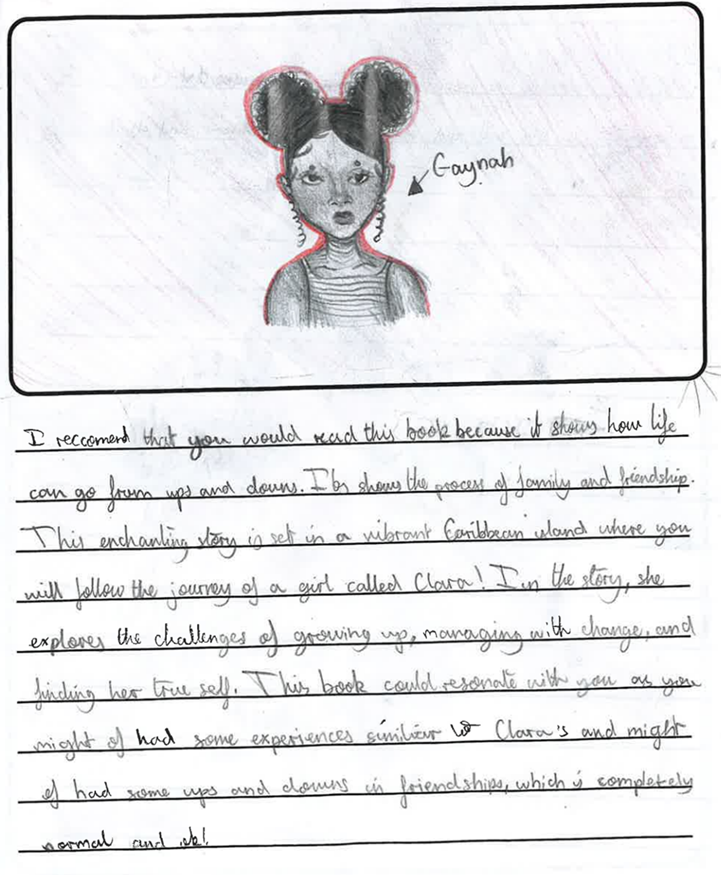 Gaynah
I reccomend that you would read this book because it shows how life
can go from ups and downs. It shows the process of family and friendship.
This enchanting story is set in a vibrant Caribbean island where you
will follow the journey of a girl called Clara! In the story, she
explores the challenges of growing up, managing with change, and
finding her true self. This book could resonate with you as you
might of had some experiences similiar to Clara's and might
of had some ups and downs in friendships, which is completely
normal and ok!